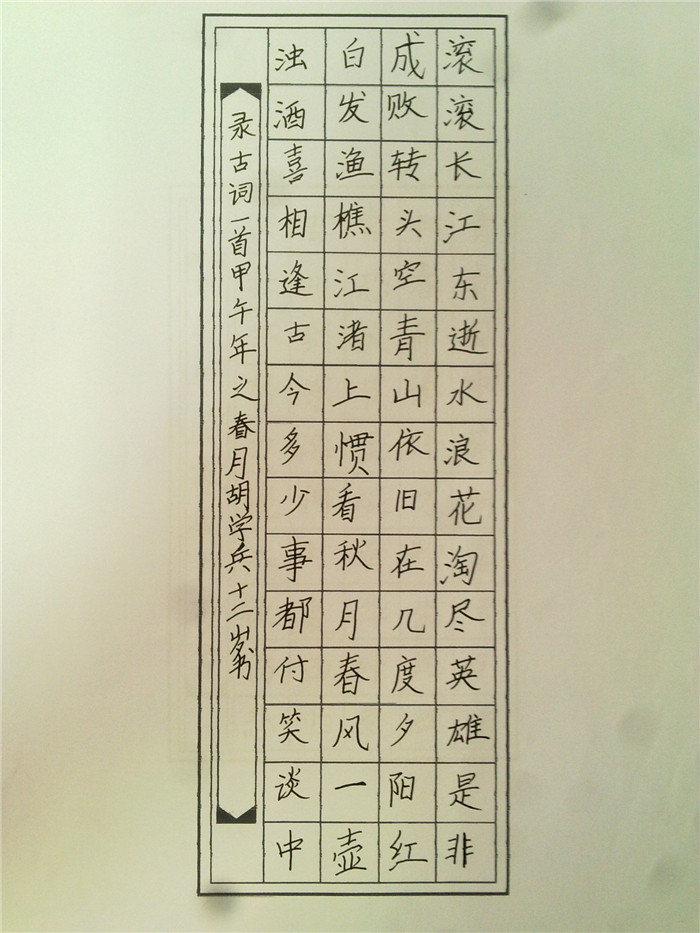 滚滚长江东逝水浪花淘尽英雄是非
成败转头空青山依旧在几度夕阳红
白发渔樵江渚上惯看秋月春风一壶
浊酒喜相逢古今多少事都付笑谈中
录古词一首甲午年之春月胡学兵十二岁书